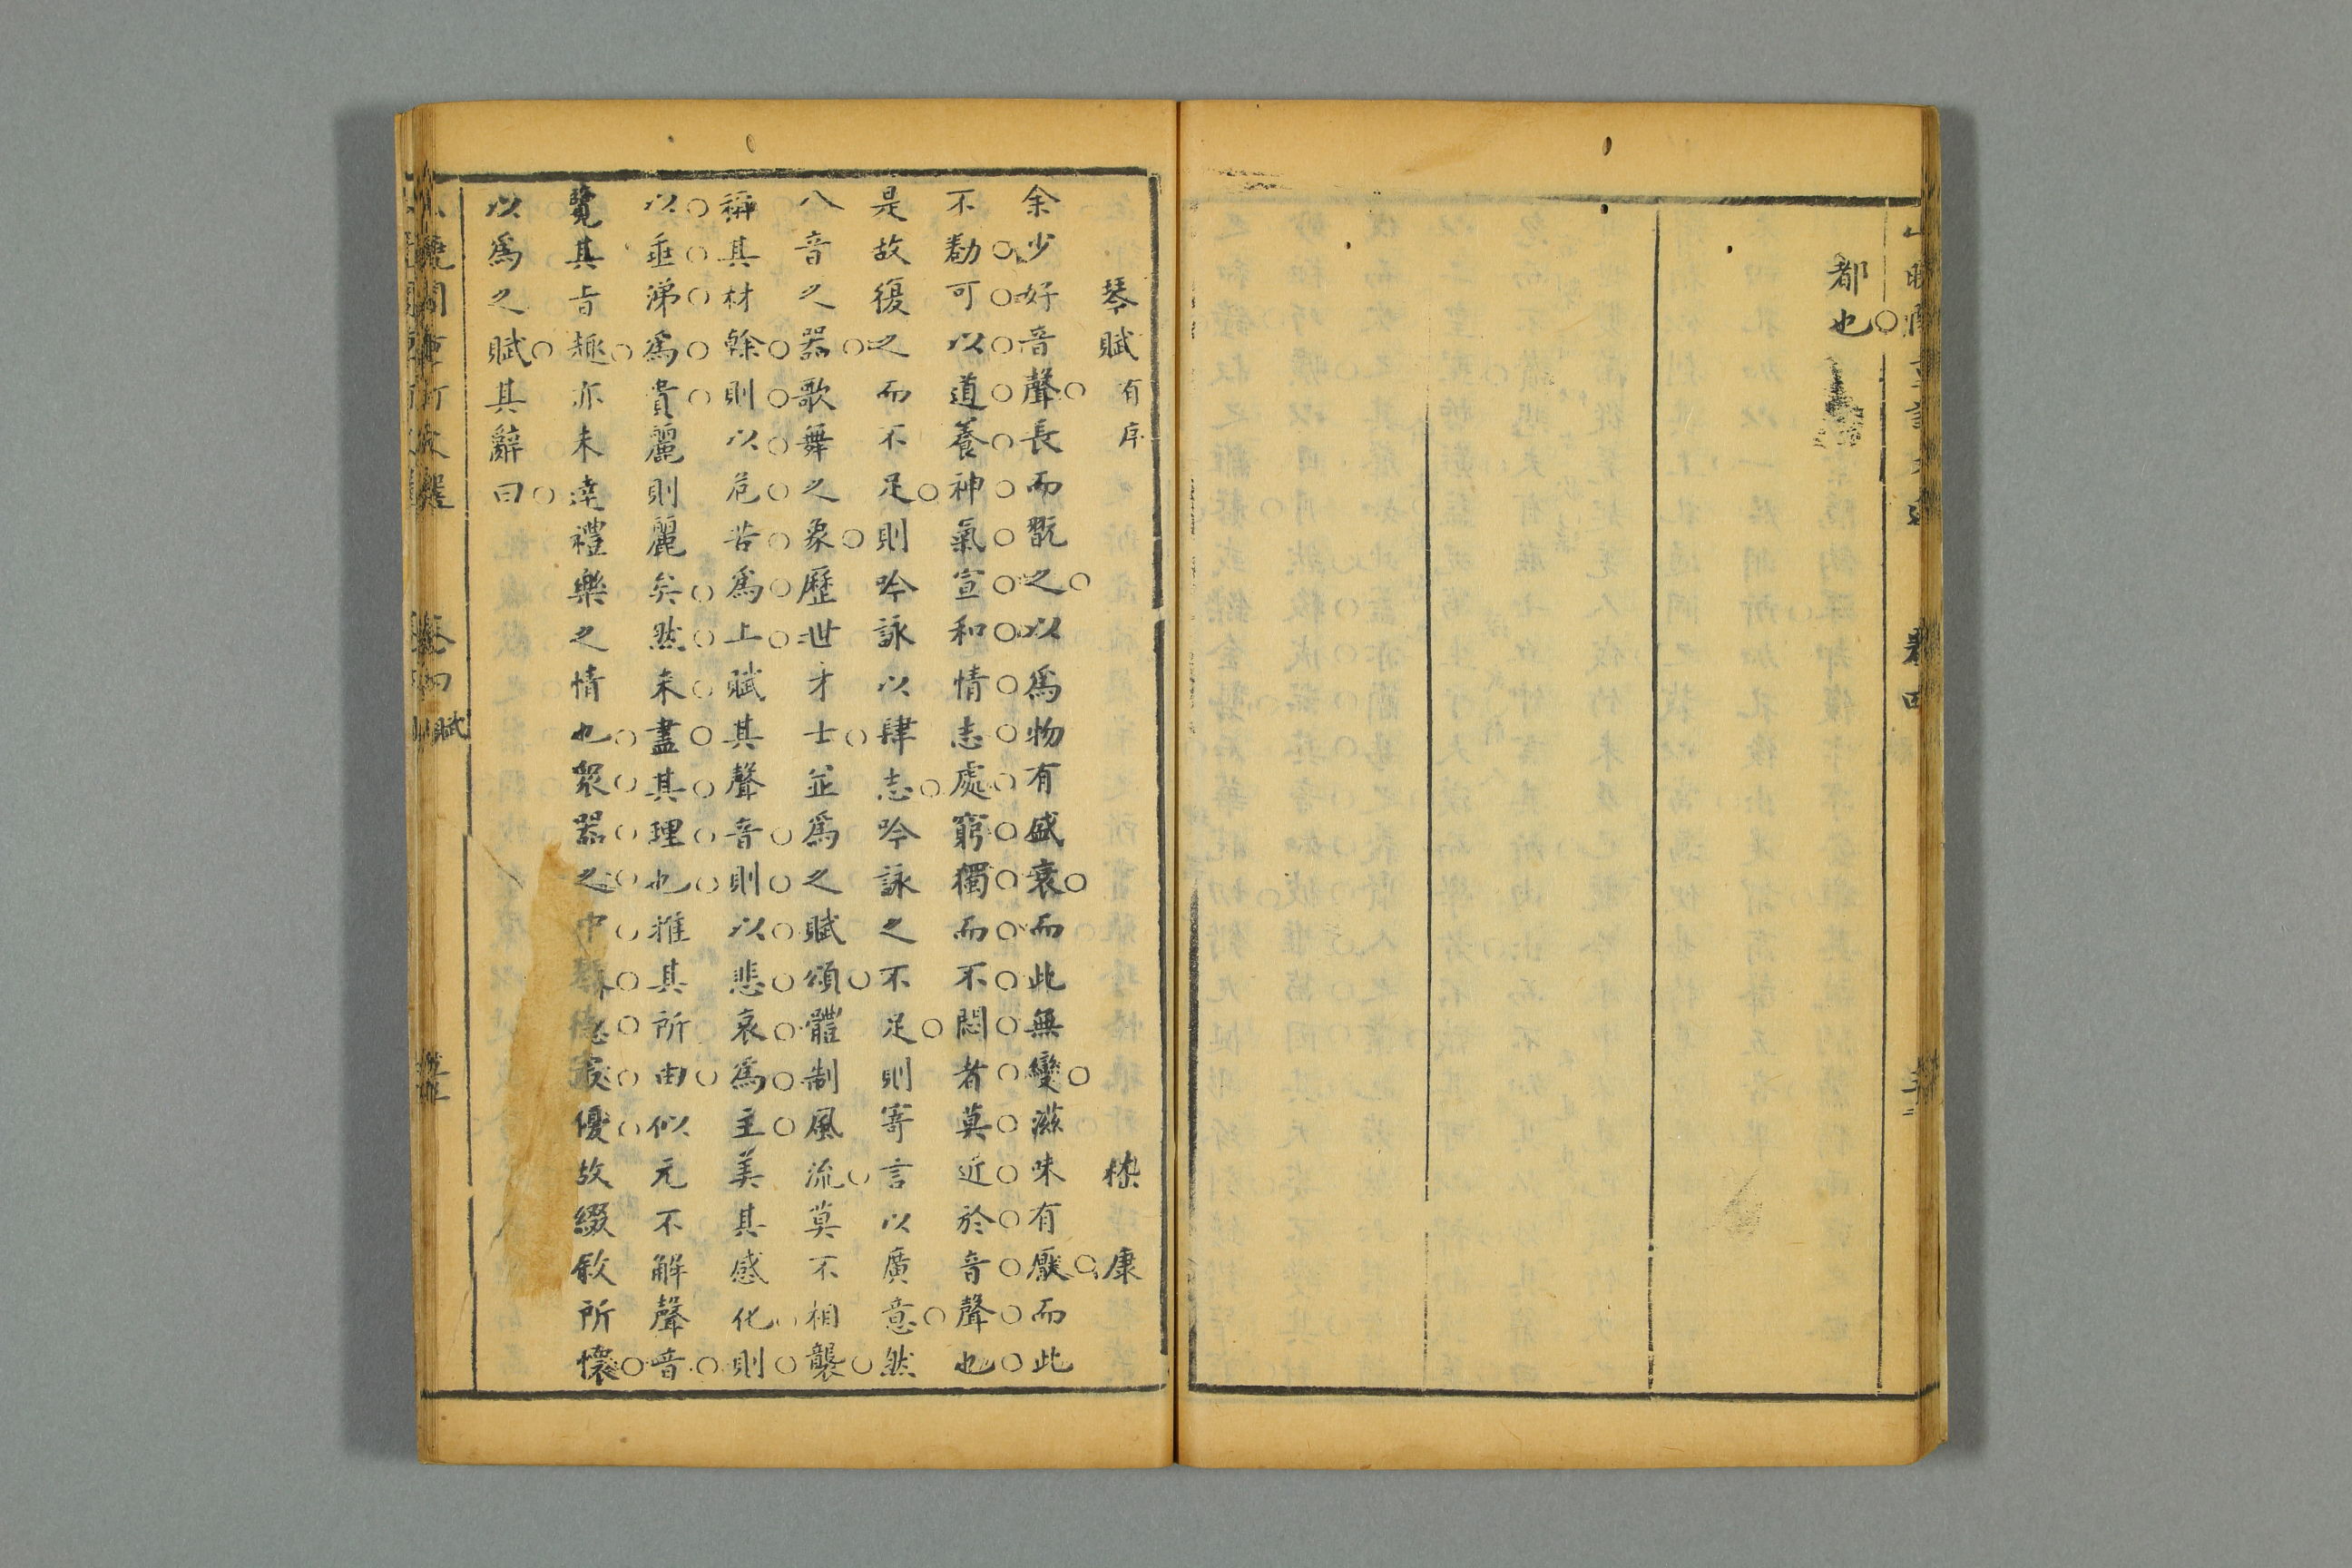 都也
卷四
琴賦 有序 嵇康
余少好音聲長而翫之以爲物有盛衰而此無變滋味有厭而此
不勌可以道養神氣宣和情志處窮獨而不悶者莫近於音聲也
是故復之而不足則吟詠以肆志吟詠之不足則寄言以廣意然
八音之器歌舞之象歷世才士並爲之賦頌體制風流莫不相襲
稱其材幹則以危苦爲上賦其聲音則以悲哀爲主美其感化則
以垂涕爲貴麗則麗矣然未盡其理也推其所由似元不解聲音
覽其旨趣亦未達禮樂之情也衆器之中琴德最優故綴敘所懷
以爲之賦其辭曰
卷四 賦